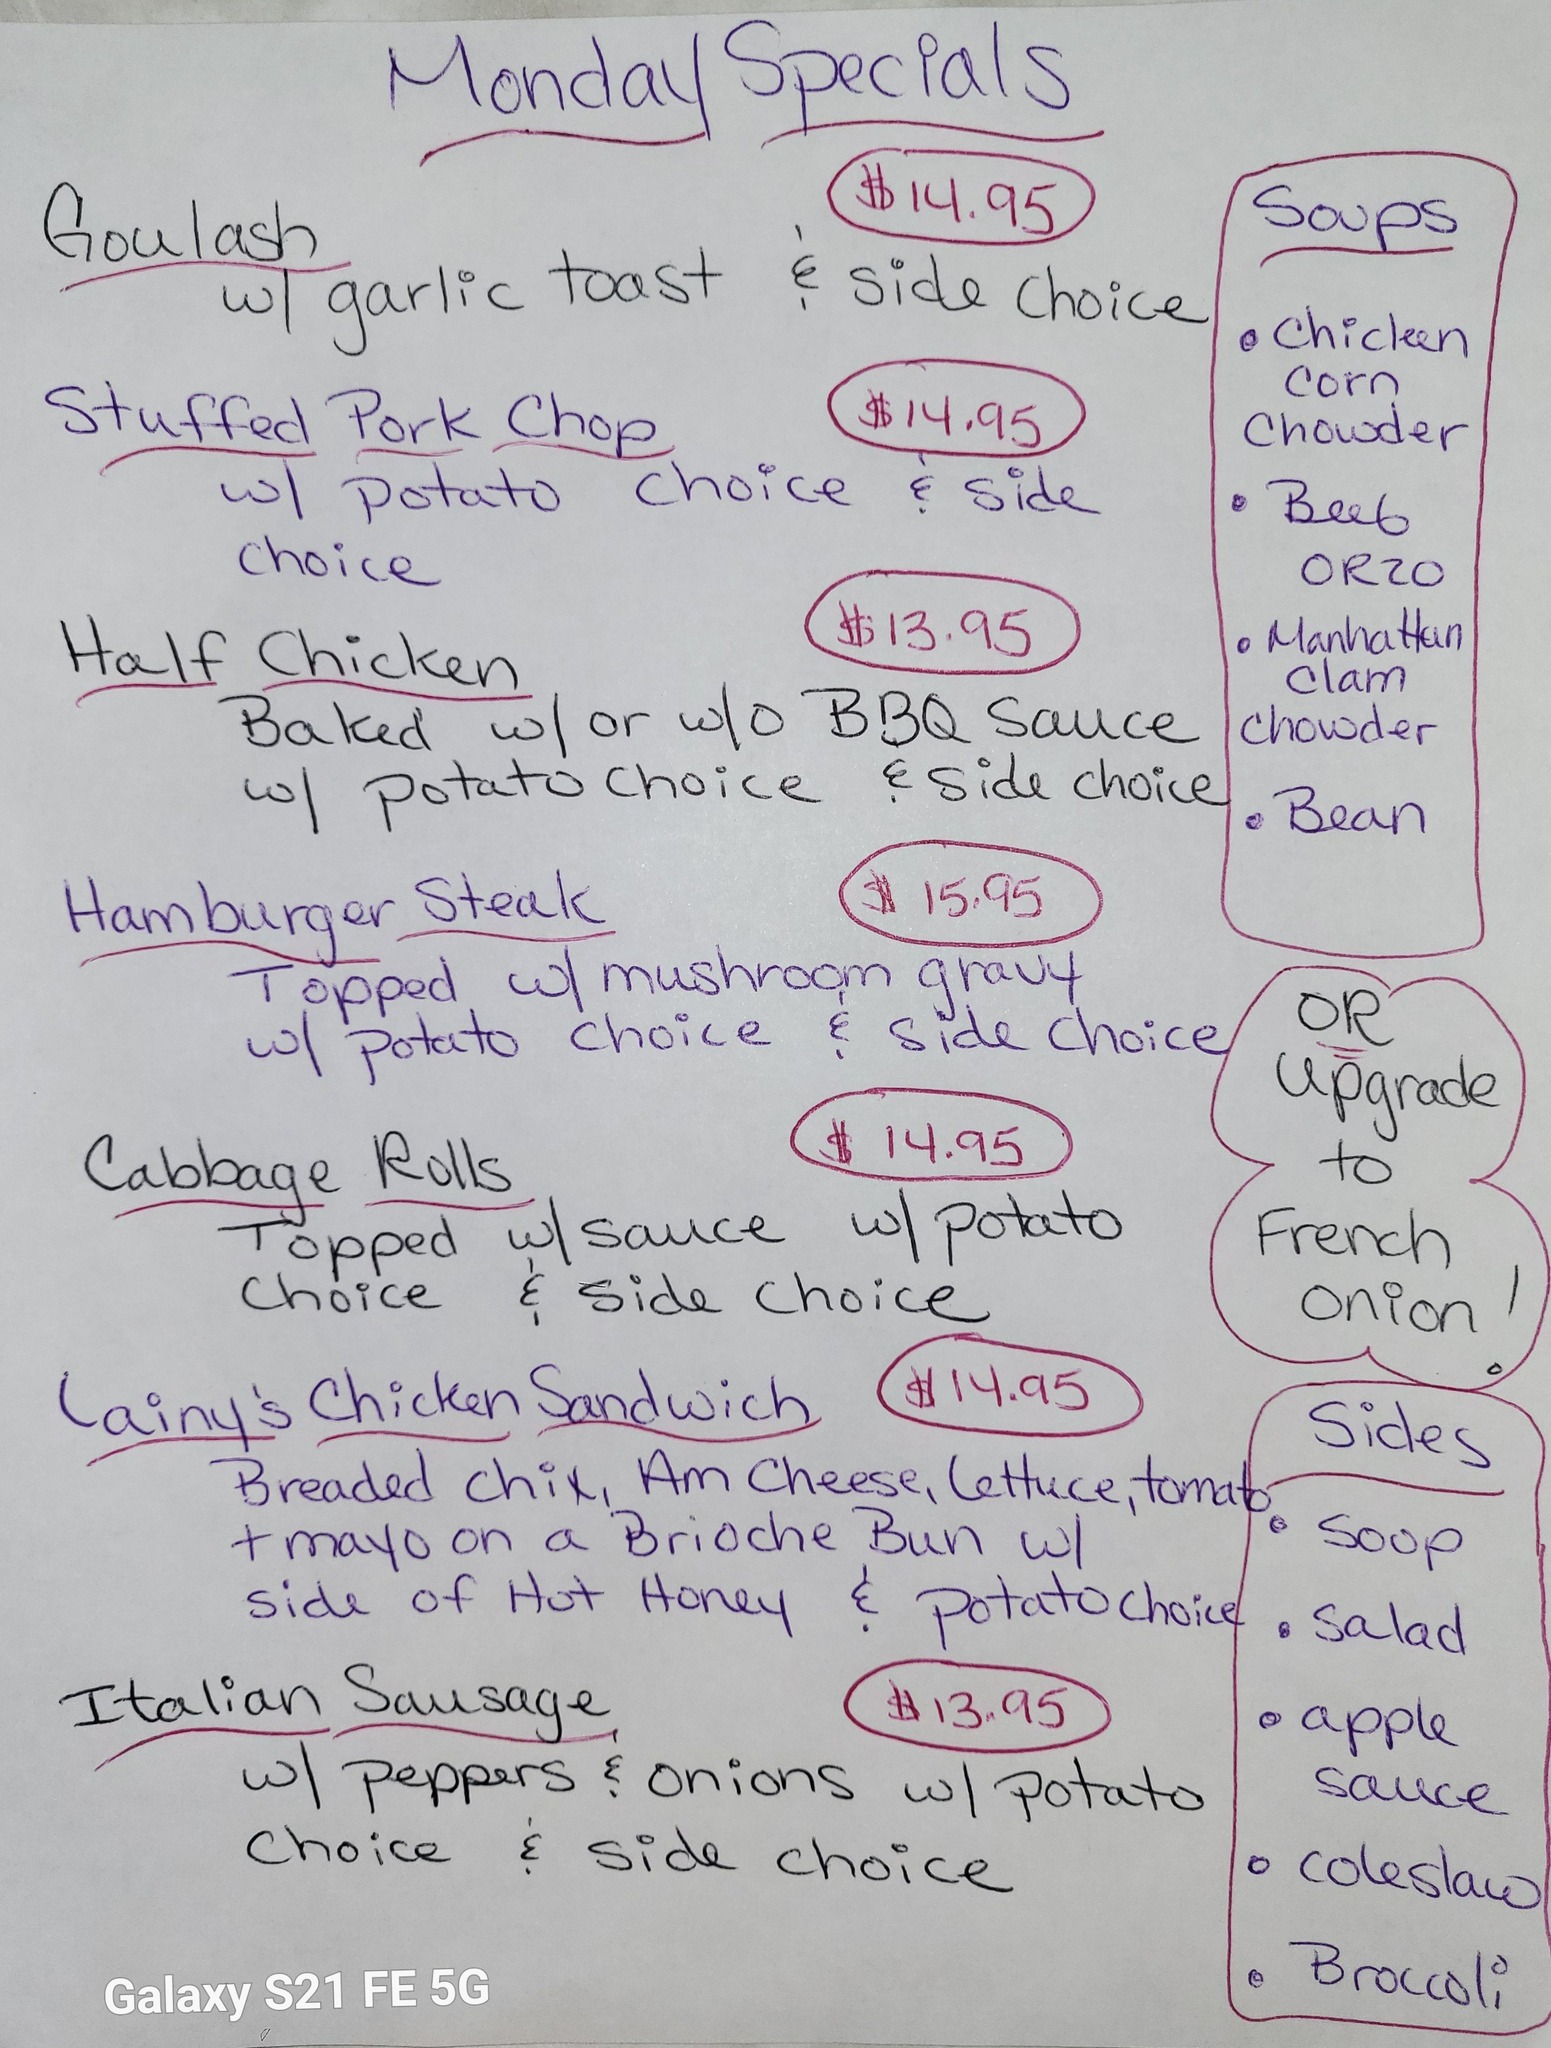 Monday Specials
Goulash $14.95
w/ garlic toast & side choice
Stuffed Pork Chop $14.95
w/ potato choice & side
choice
Half Chicken $13.95
Baked w/ or w/o BBQ Sauce
w/ potato choice & side choice
Hamburger Steak $15.95
Topped w/ mushroom gravy
w/ potato choice & side choice
Cabbage Rolls $14.95
Topped w/ sauce w/ potato
choice & side choice
Lainy's Chicken Sandwich $14.95
Breaded chix, Am Cheese, Lettuce, tomato
+ mayo on a Brioche Bun w/
side of Hot Honey & potato choice
Italian Sausage $13.95
w/ peppers & onions w/ potato
choice & side choice
Soups
• Chicken
Corn
Chowder
• Beef
ORZO
• Manhattan
Clam
Chowder
• Bean
OR
upgrade
to
French
onion!
Sides
• Soup
• Salad
• apple
sauce
• coleslaw
• Broccoli
Galaxy S21 FE 5G